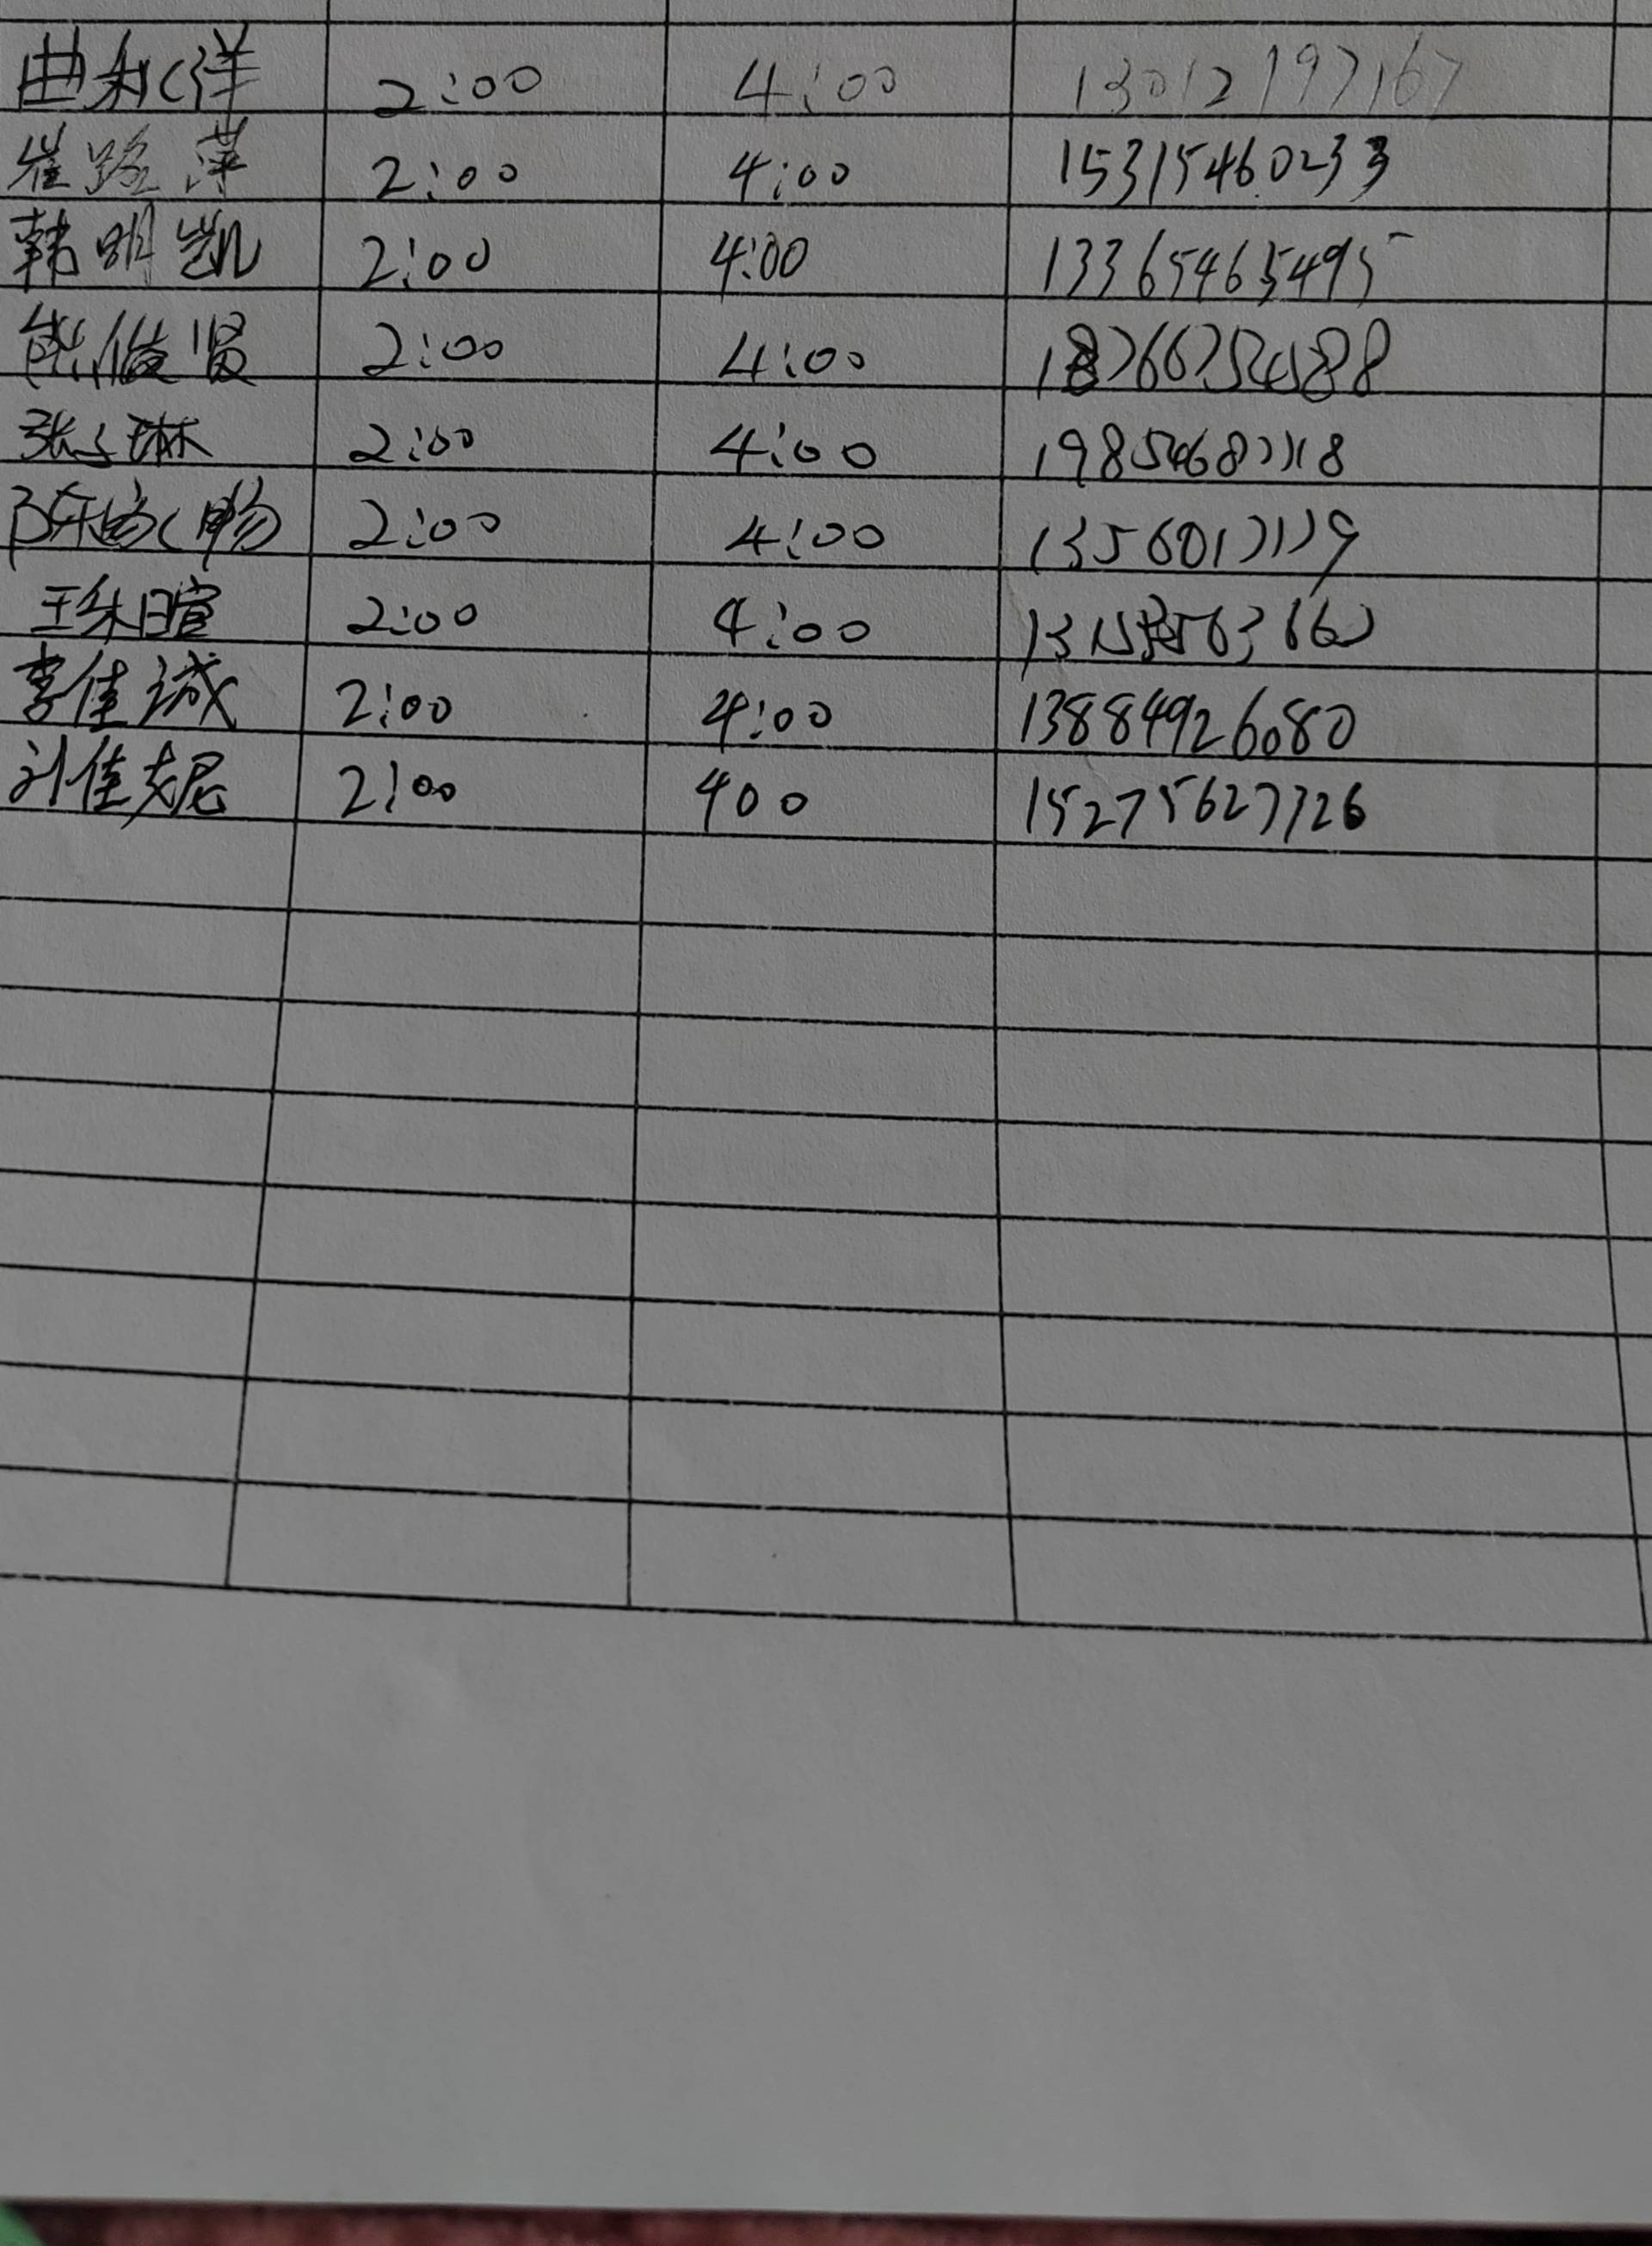 曲 洋 2:00 4:00 13012197167
崔路萍 2:00 4:00 15315460233
韩明凯 2:00 4:00 13365465495
熊俊贤 2:00 4:00 18766754188
张子琳 2:00 4:00
陈 畅 2:00 4:00
王 暄 2:00 4:00
李佳诚 2:00 4:00 13884926080
刘佳妮 2:00 400 15275627726